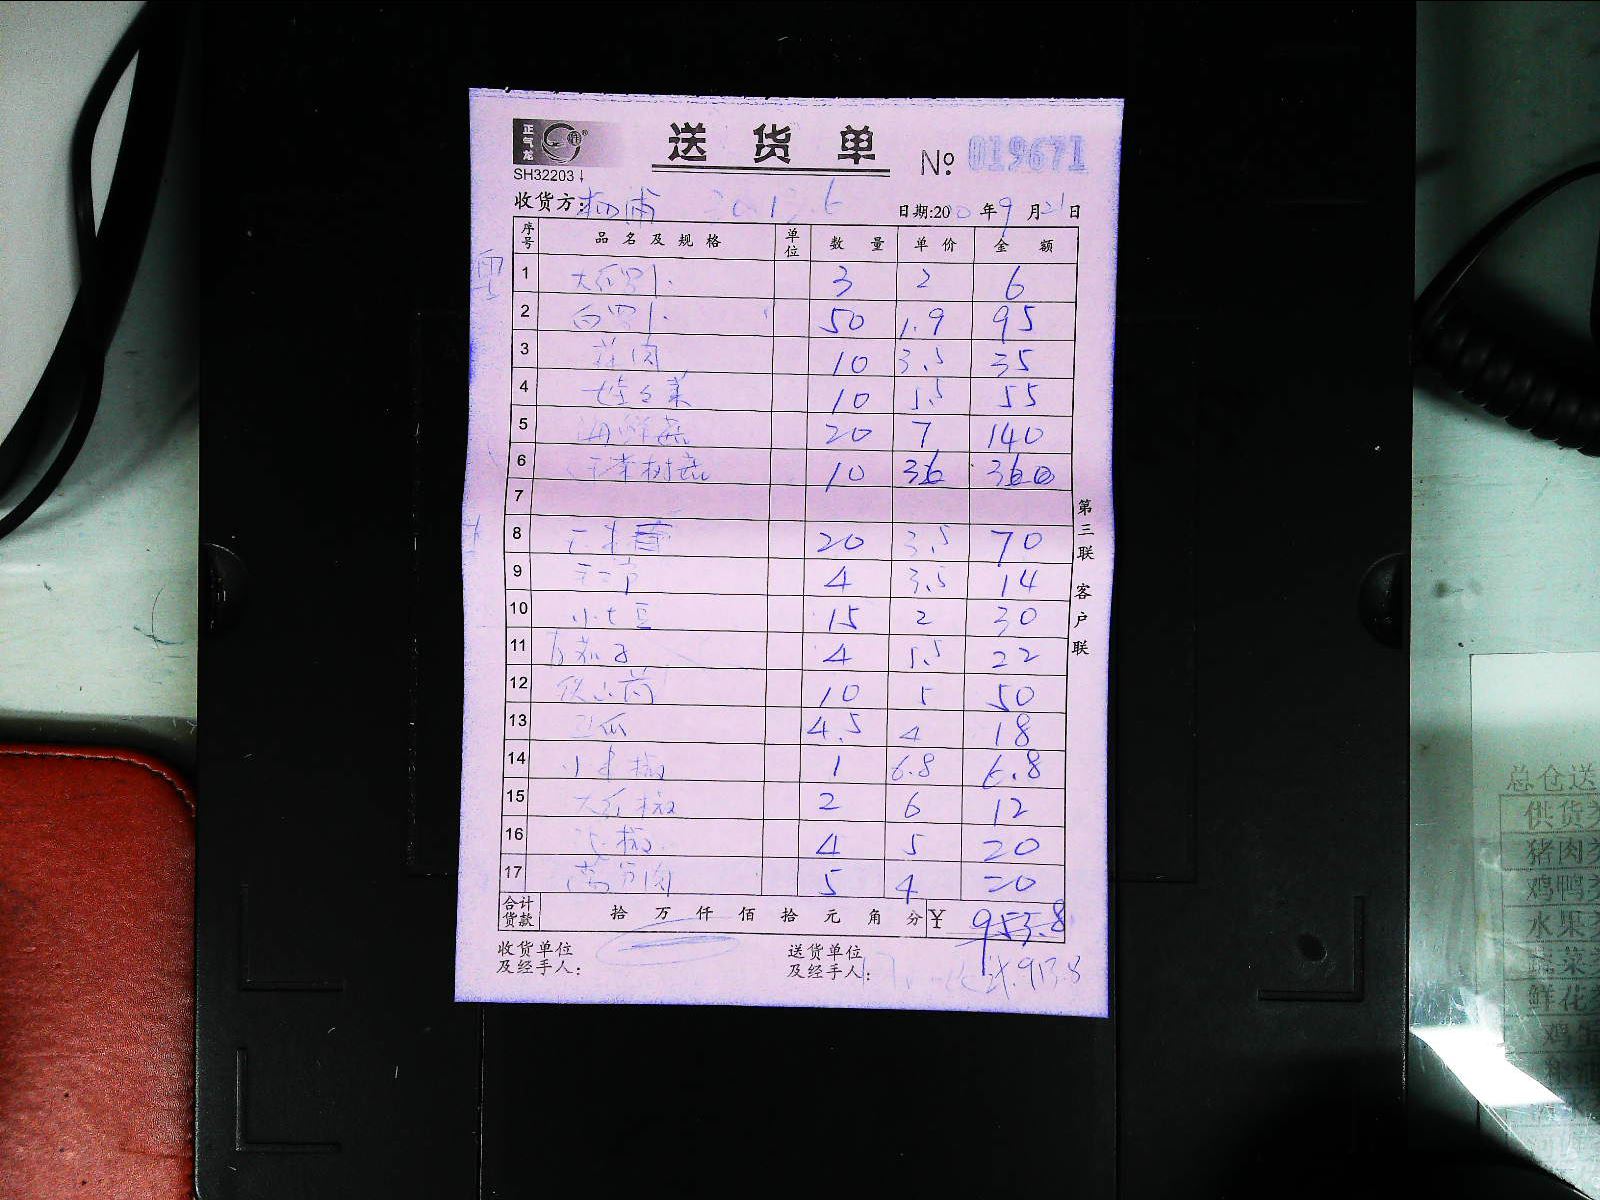 正气龙
祥®
送货单
№ 019671
SH32203
收货方: 杨浦
日期:20 年9月21日
序号 品名及规格 单位 数量 单价 金额
1 大红罗卜 3 2 6
2 白罗卜 50 1.9 95
3 10 3.5 35
4 娃々菜 10 5.5 55
5 海鲜菇 20 7 140
6 茶树菇 10 36 360
7
8 20 3.5 70
9 4 3.5 14
10 小土豆 15 2 30
11 茄子 4 5.5 22
12 铁山药 10 5 50
13 瓜 4.5 4 18
14 小米椒 1 6.8 6.8
15 大红椒 2 6 12
16 椒 4 5 20
17 5 4 20
合计货款 拾 万 仟 佰 拾 元 角 分 ¥ 953.8
收货单位及经手人:
送货单位及经手人:
第三联 客户联
总仓送
供货
猪肉
鸡鸭
水果
蔬菜
鲜花